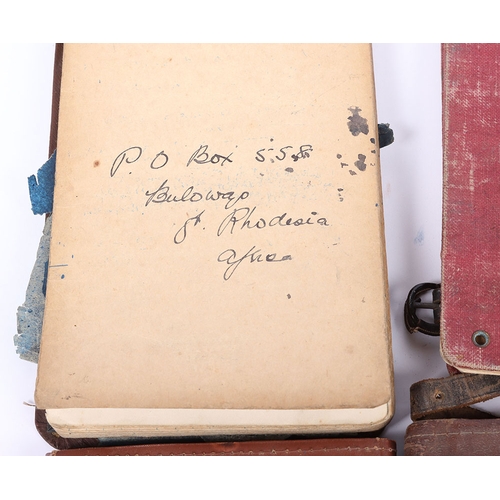 P.O Box 558
Bulowayo
St. Rhodesia
Africa